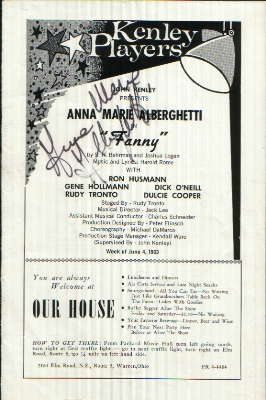 Kenley
Players
JOHN KENLEY
PRESENTS
ANNA MARIE ALBERGHETTI
"Fanny"
by S. N. Behrman and Joshua Logan
Music and Lyrics: Harold Rome
WITH
RON HUSMANN
GENE HOLLMANN DICK O'NEILL
RUDY TRONTO DULCIE COOPER
Staged By - Rudy Tronto
Musical Director - Jack Lee
Assistant Musical Conductor - Charles Schneider
Production Designed By - Peter
Choreography - Michael DeMarco
Production Stage Manager - Kendall Ware
(Supervised By - John Kenley)
Week of June 4, 1963
You are always
Welcome at
OUR HOUSE
Luncheons and Dinners
Ala Carte Service and Late Night Snacks
Smorgasbord - All You Can Eat - No Waiting
Just Like Grandmothers Table Back On
The Farm - Laden With Goodies
Buffet Special After The Show
Friday and Saturday - No Waiting
Your Favorite Beverage - Liquor, Beer and Wine
Plan Your Next Party Here
Before or After The Show
HOW TO GET THERE: From Packard Music Hall turn left going north,
turn right at first traffic light - go to next traffic light, turn right on Elm
Road, Route 5, go 1/4 mile on left hand side.
Elm Road, N.E., Route 5, Warren, Ohio FR 4-4484